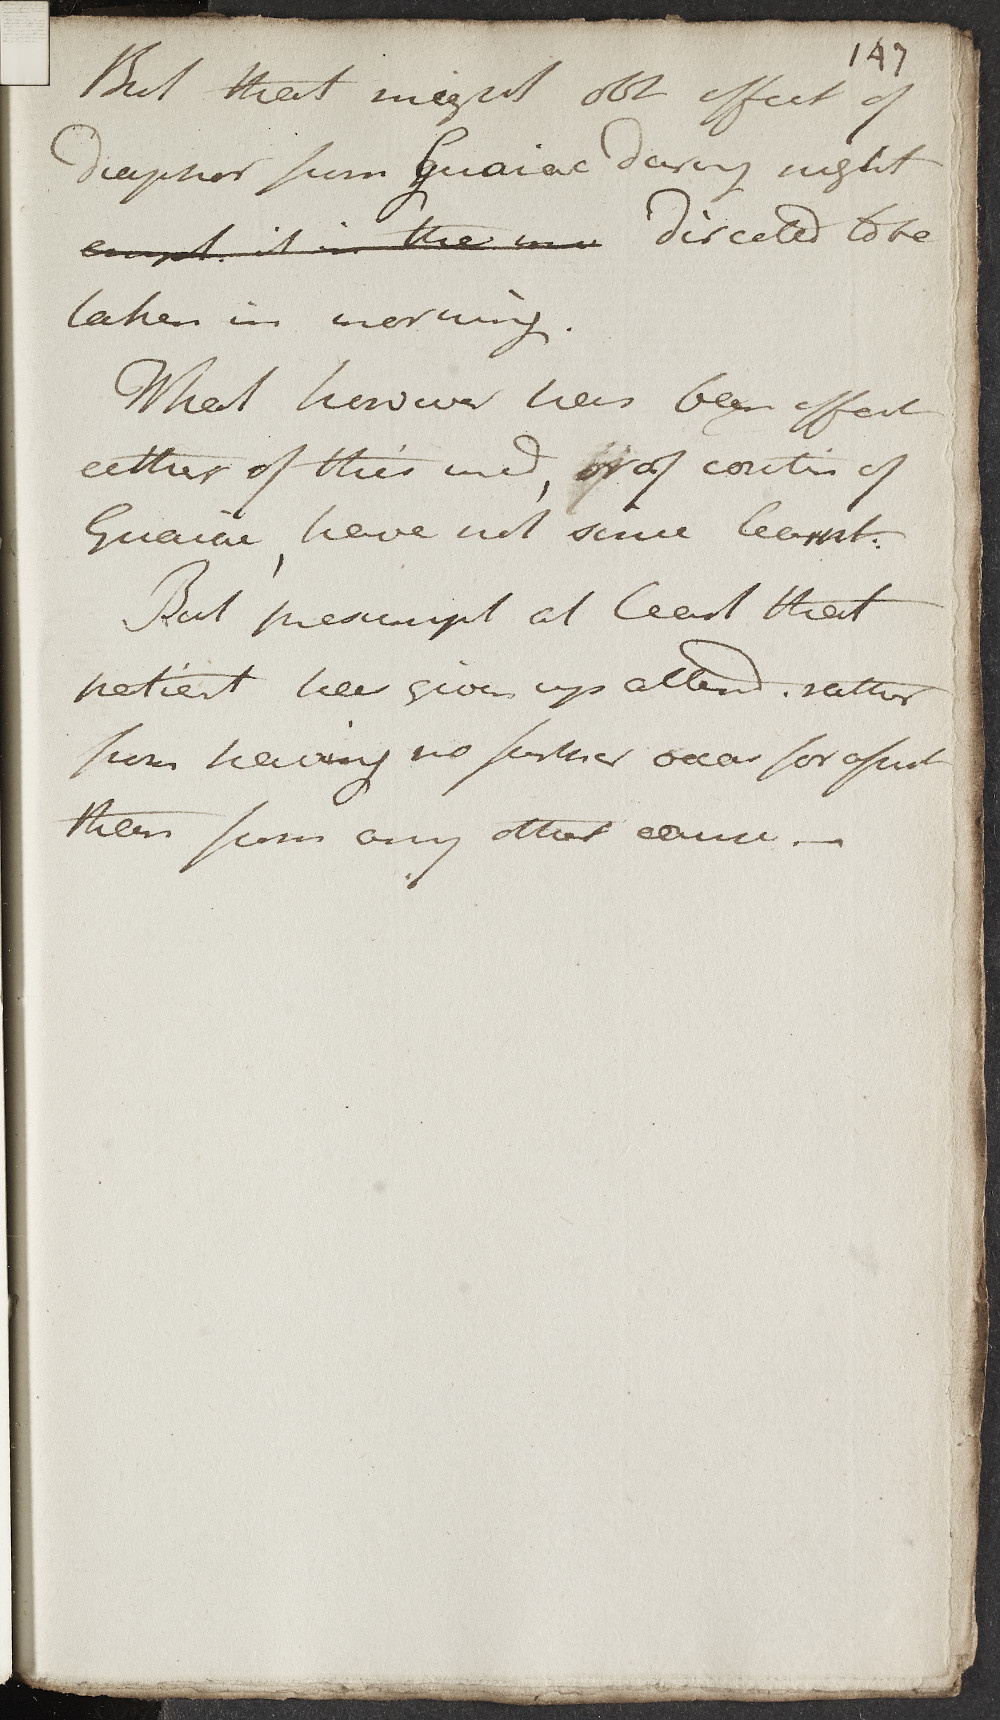 147
But that might obt effect of
diaphor from Guaiac during night
empl. it in the directed to be
taken in morning.
What however has been effect
either of this med, or of contin of
Guaiac, have not since learnt.
But presumpt at least that
patient has given up attend. rather
from having no further occas for assist
than from any other cause. —